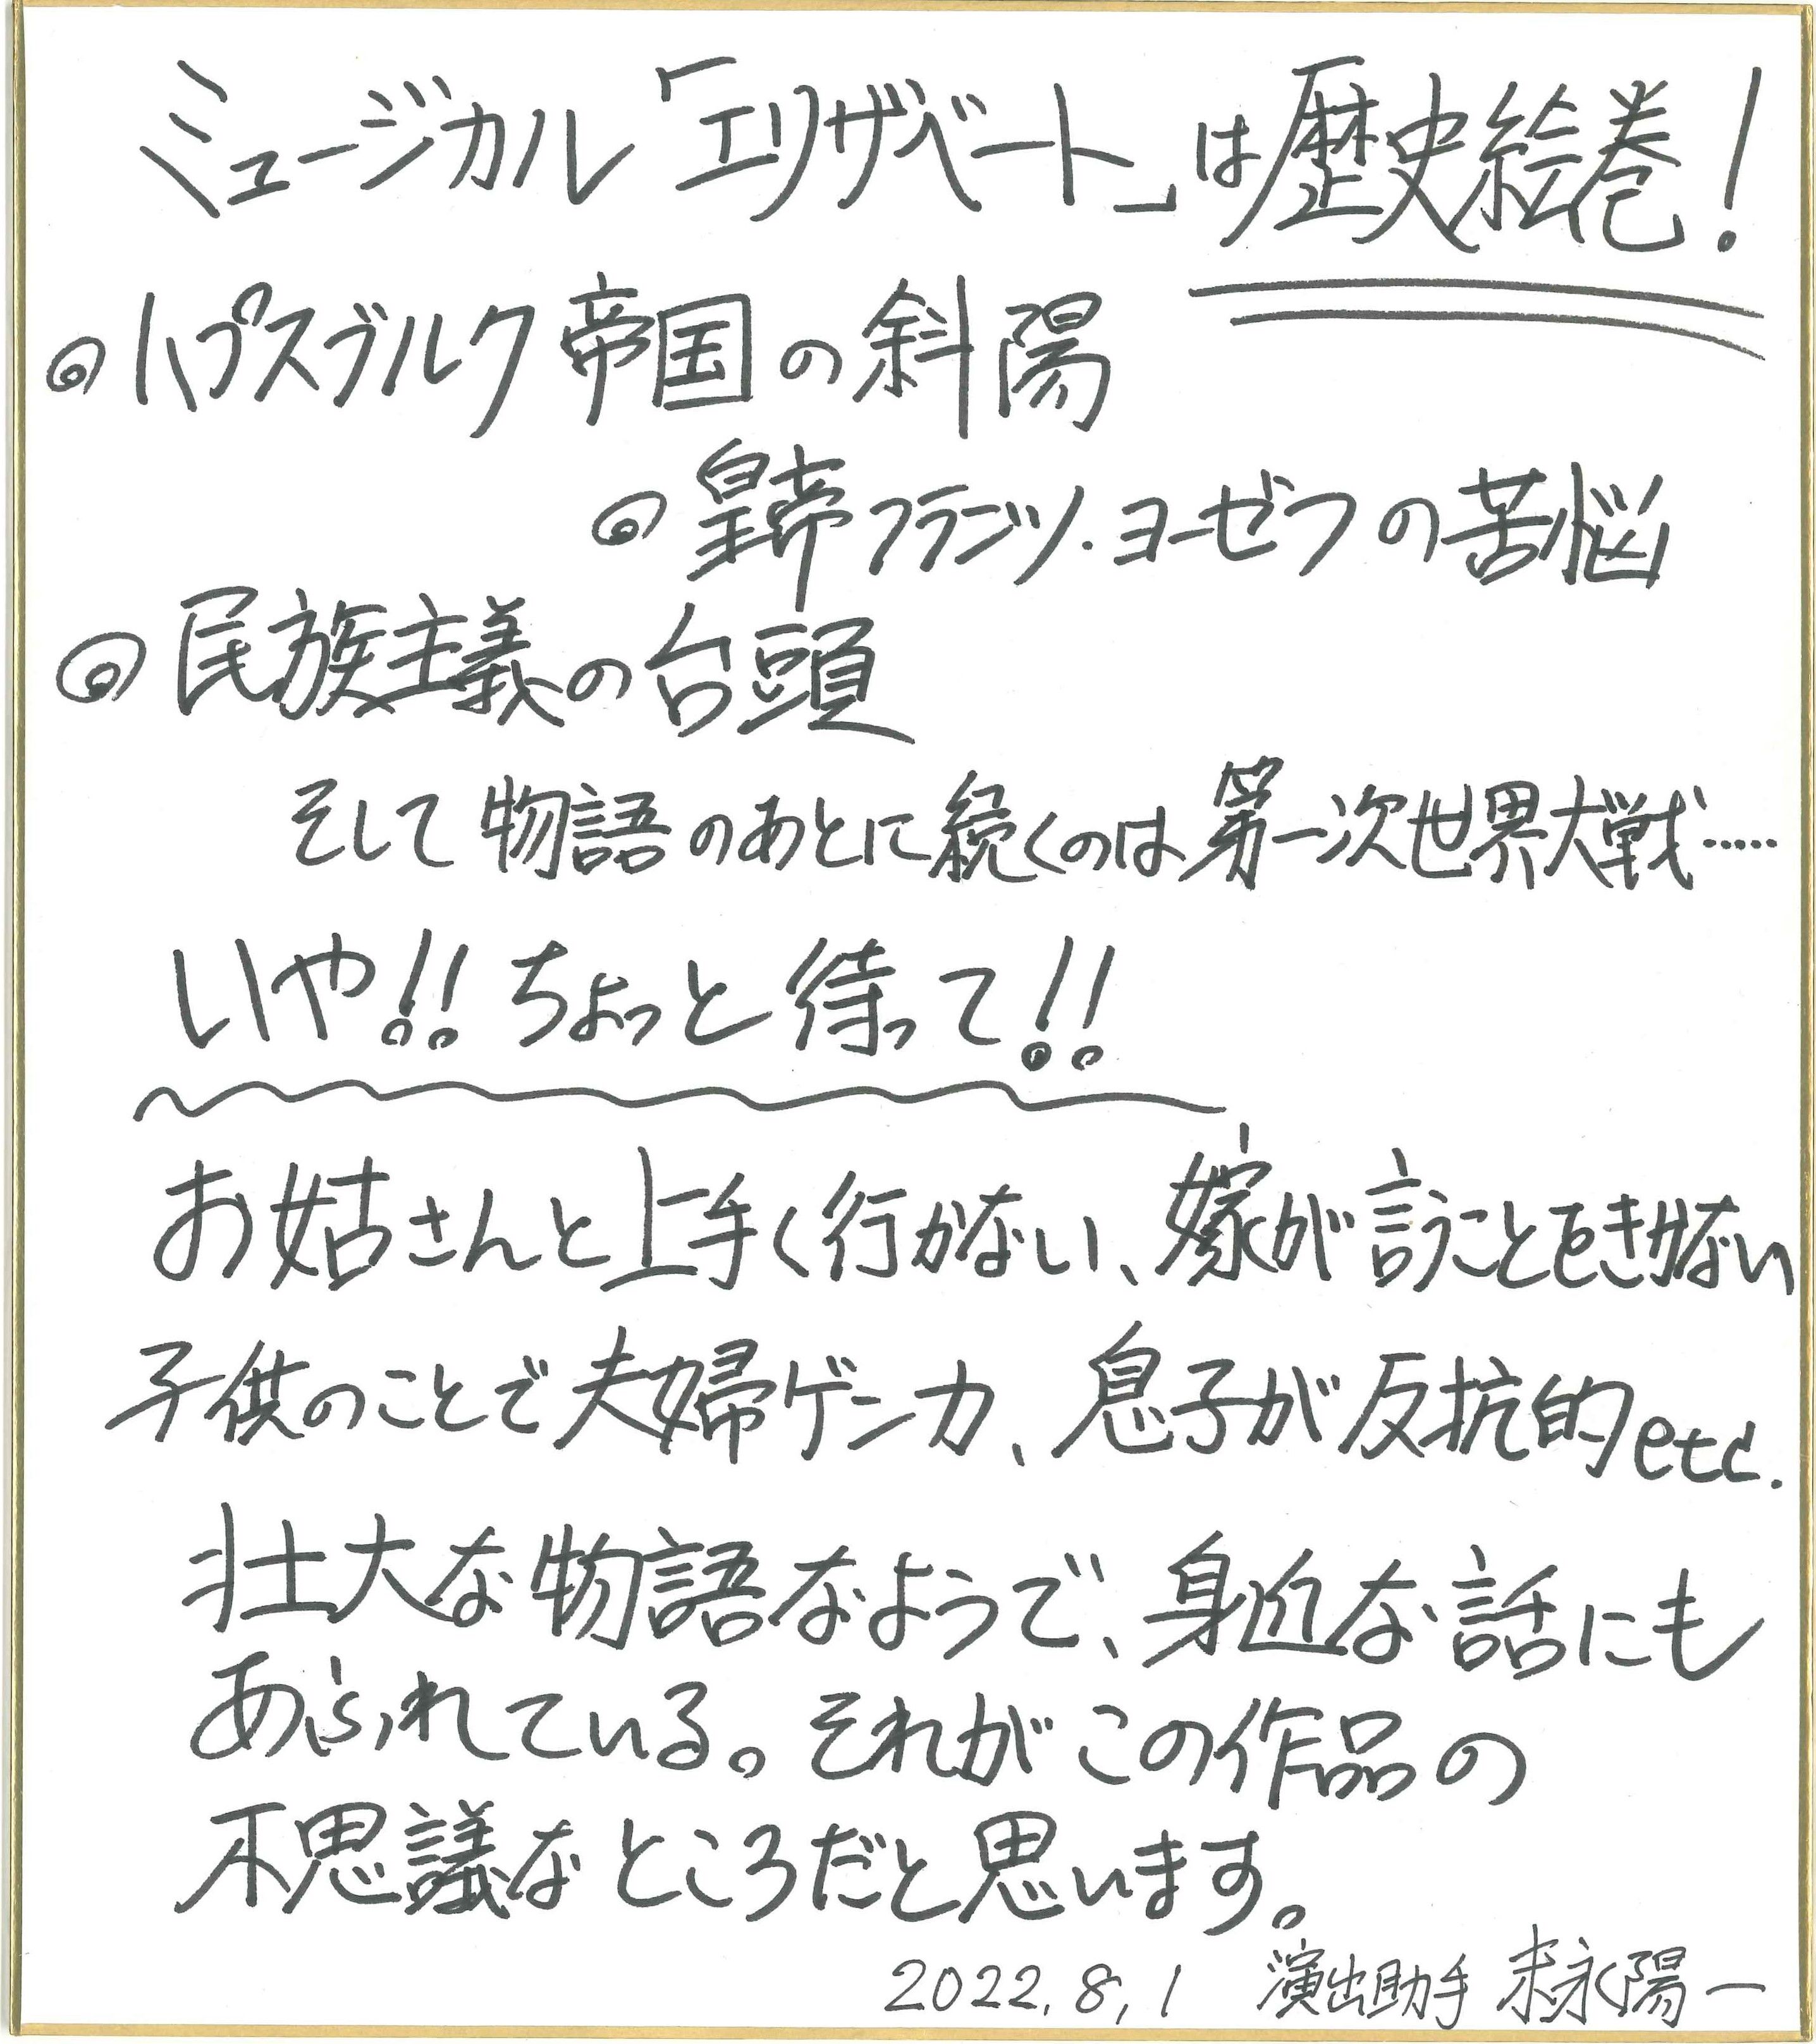 ミュージカル「エリザベート」は歴史絵巻!
◎ハプスブルク帝国の斜陽
◎皇帝フランツ・ヨーゼフの苦悩
◎民族主義の台頭
そして物語のあとに続くのは第一次世界大戦……
いや!!ちょっと待って!!
お姑さんと上手く行かない、嫁が言うことをきかない
子供のことで夫婦ゲンカ、息子が反抗的etc.
壮大な物語なようで、身近な話にも
あふれている。それがこの作品の
不思議なところだと思います。
2022.8.1 演出助手 末永陽一